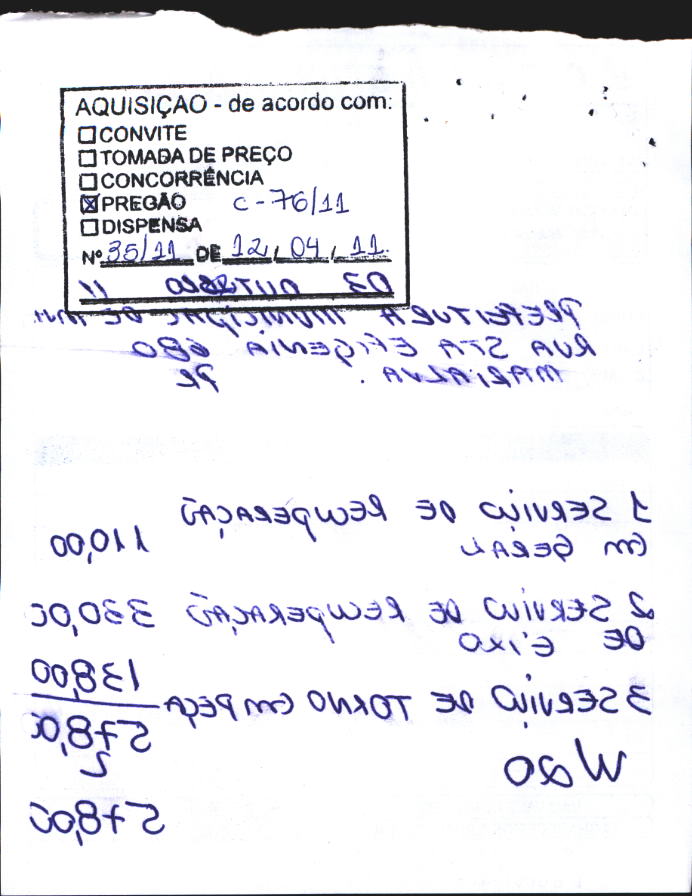 AQUISIÇÃO - de acordo com:
CONVITE
TOMADA DE PREÇO
CONCORRÊNCIA
PREGÃO C-76/11
DISPENSA
Nº 35/11 DE 12/04/11.
03 OUTUBRO 11
PREFEITURA MUNICIPAL DE
RUA STA EFIGENIA 680
MARIALVA. PR
1 SERVIÇO DE RECUPERAÇÃO
EM GERAL 110,00
2 SERVIÇO DE RECUPERAÇÃO 330,00
DE EIXO
3 SERVIÇO DE TORNO EM PEÇA 138,00
578,00
578,00